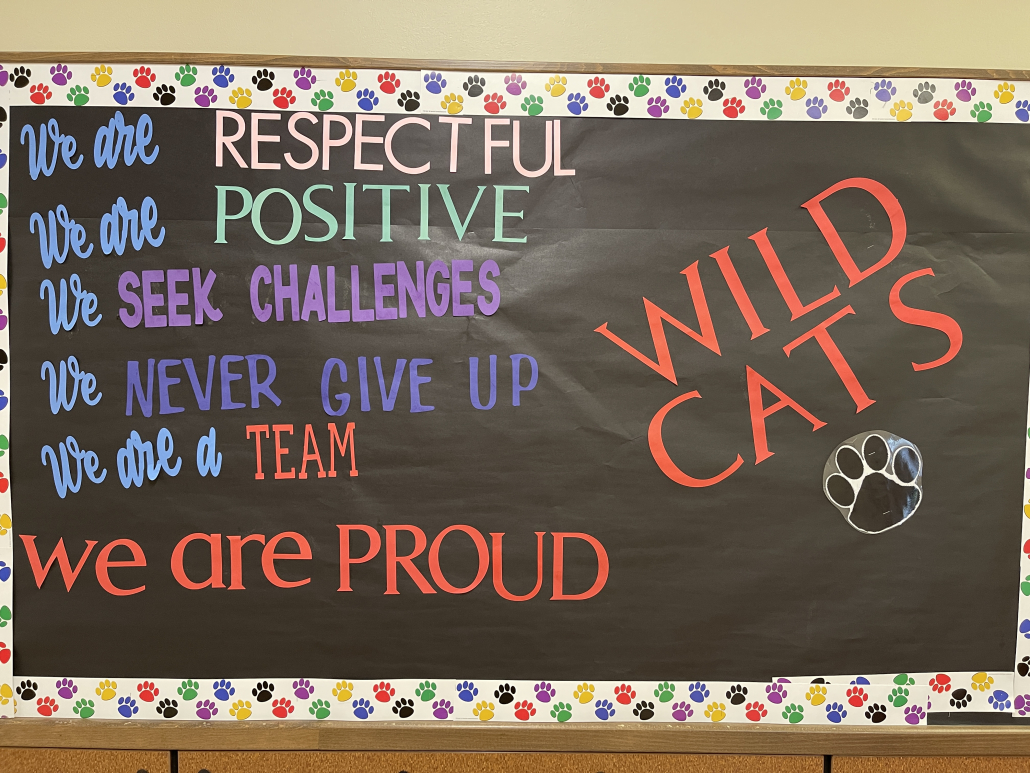 We are RESPECTFUL
We are POSITIVE
We SEEK CHALLENGES
We NEVER GIVE UP
We are a TEAM
we are PROUD
WILD
CATS